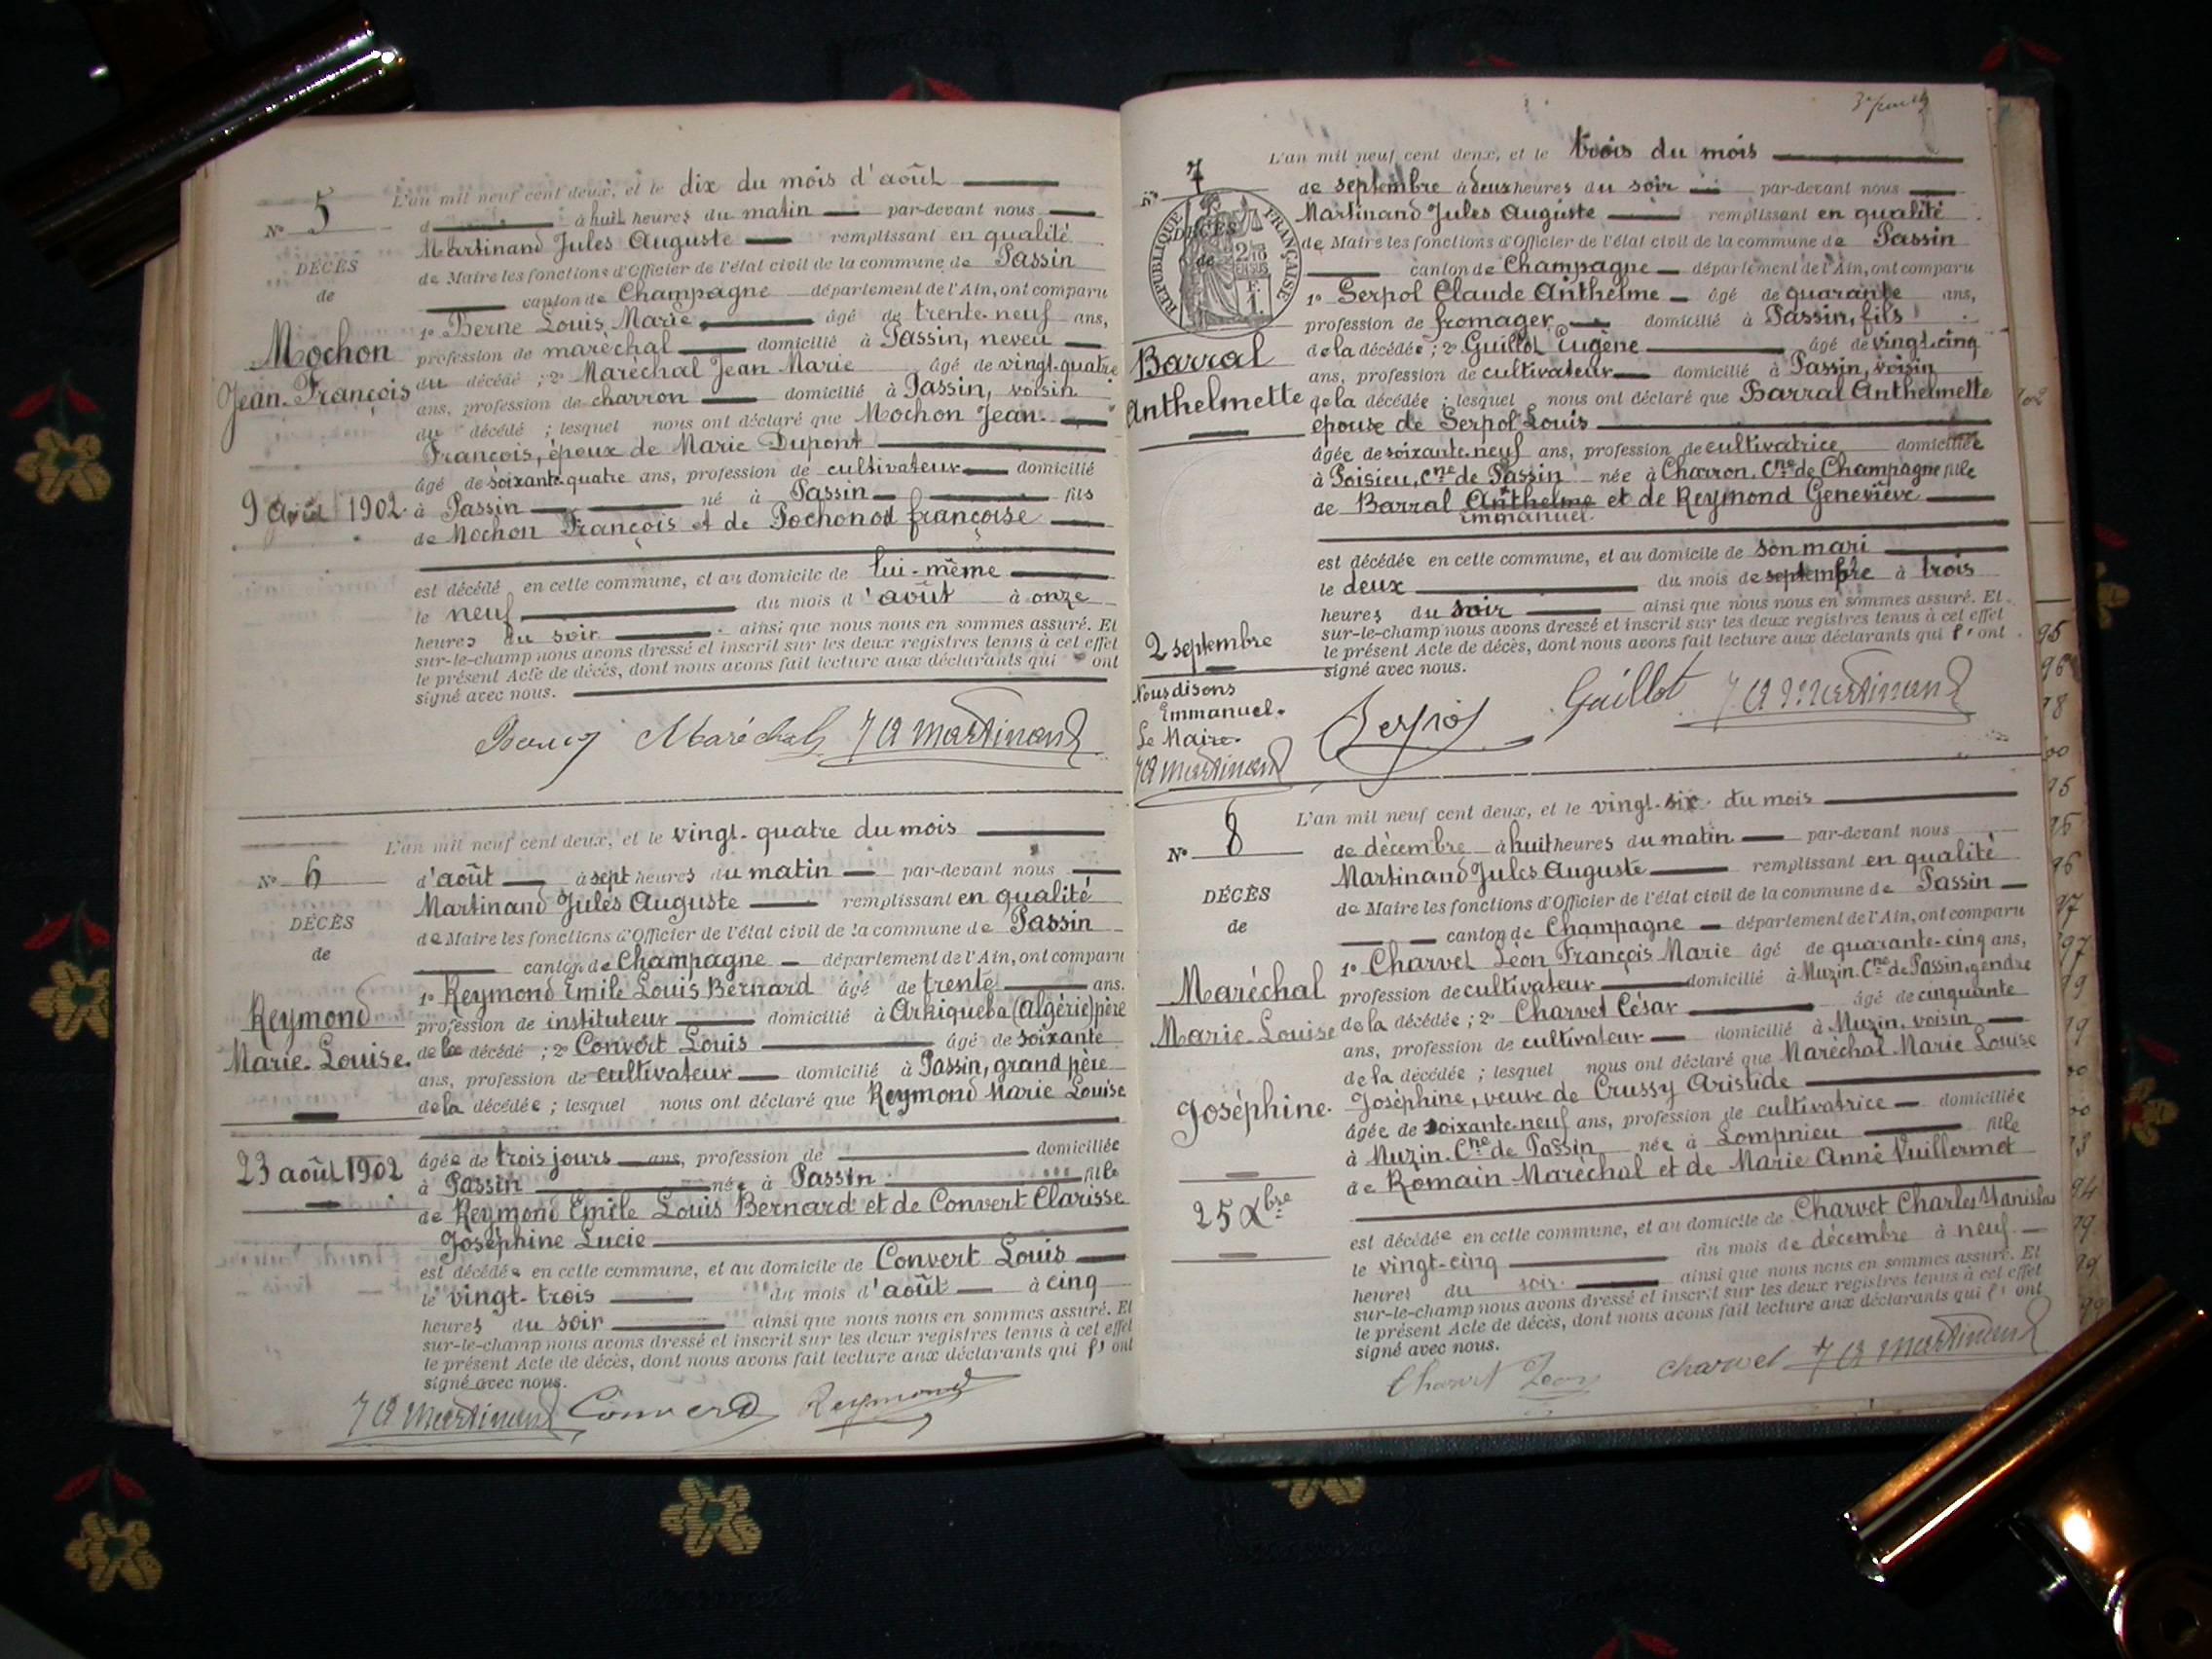 L'an mil neuf cent deux, et le dix du mois d'août
N° 5
d à huit heures du matin par-devant nous
Martinand Jules Auguste remplissant en qualité
DÉCÈS
de Maire les fonctions d'Officier de l'état civil de la commune de Passin
de
canton de Champagne département de l'Ain, ont comparu
1° Berne Louis Marie âgé de trente neuf ans,
Mochon
profession de maréchal domicilié à Passin, neveu
Jean-François
du décédé ; 2° Maréchal Jean Marie âgé de vingt-quatre
ans, profession de charron domicilié à Passin, voisin
du décédé ; lesquel nous ont déclaré que Mochon Jean-
François, époux de Marie Dupont
âgé de soixante quatre ans, profession de cultivateur domicilié
9 1902
à Passin né à Passin fils
de Mochon François et de Pochonod françoise
est décédé en cette commune, et au domicile de lui-même
le neuf du mois d'août à onze
heures du soir ainsi que nous nous en sommes assuré. Et
sur-le-champ nous avons dressé et inscrit sur les deux registres tenus à cet effet
le présent Acte de décès, dont nous avons fait lecture aux déclarants qui ont
signé avec nous.
Maréchal J A Martinand
L'an mil neuf cent deux, et le vingt-quatre du mois
N° 6
d'août à sept heures du matin par-devant nous
Martinand Jules Auguste remplissant en qualité
DÉCÈS
de Maire les fonctions d'Officier de l'état civil de la commune de Passin
de
canton de Champagne département de l'Ain, ont comparu
1° Reymond Emile Louis Bernard âgé de trente ans.
Reymond
profession de instituteur domicilié à Arhiqueba (Algérie) père
Marie-Louise.
de la décédé ; 2° Convert Louis âgé de soixante
ans, profession de cultivateur domicilié à Passin, grand père
de la décédée ; lesquel nous ont déclaré que Reymond Marie Louise
23 août 1902
âgée de trois jours ans, profession de domiciliée
à Passin née à Passin fille
de Reymond Emile Louis Bernard et de Convert Clarisse
Joséphine Lucie
est décédée en cette commune, et au domicile de Convert Louis
le vingt-trois du mois d'août à cinq
heures du soir ainsi que nous nous en sommes assuré. Et
sur-le-champ nous avons dressé et inscrit sur les deux registres tenus à cet effet
le présent Acte de décès, dont nous avons fait lecture aux déclarants qui l' ont
signé avec nous.
J A Martinand Convert Reymond
L'an mil neuf cent deux, et le trois du mois
N° 7
de septembre à deux heures du soir par-devant nous
Martinand Jules Auguste remplissant en qualité
RÉPUBLIQUE FRANÇAISE
DÉCÈS
de
de Maire les fonctions d'Officier de l'état civil de la commune de Passin
canton de Champagne département de l'Ain, ont comparu
1° Serpol Claude Anthelme âgé de quarante ans,
profession de fromager domicilié à Passin, fils
Barral
de la décédée ; 2° Guillot Eugène âgé de vingt-cinq
ans, profession de cultivateur domicilié à Passin, voisin
Anthelmette
de la décédée ; lesquel nous ont déclaré que Barral Anthelmette
épouse de Serpol Louis
âgée de soixante-neuf ans, profession de cultivatrice domiciliée
à Poisieu, Cne de Passin née à Charron, Cne de Champagne fille
de Barral Anthelme et de Reymond Geneviève
Emmanuel.
est décédée en cette commune, et au domicile de son mari
le deux du mois de septembre à trois
heures du soir ainsi que nous nous en sommes assuré. Et
2 septembre
sur-le-champ nous avons dressé et inscrit sur les deux registres tenus à cet effet
le présent Acte de décès, dont nous avons fait lecture aux déclarants qui l' ont
signé avec nous.
Nous disons
Emmanuel.
Le Maire.
J A Martinand
Serpol Guillot J A Martinand
L'an mil neuf cent deux, et le vingt-six du mois
N° 8
de décembre à huit heures du matin par-devant nous
Martinand Jules Auguste remplissant en qualité
DÉCÈS
de Maire les fonctions d'Officier de l'état civil de la commune de Passin
de
canton de Champagne département de l'Ain, ont comparu
1° Charvet Léon François Marie âgé de quarante-cinq ans,
Maréchal
profession de cultivateur domicilié à Muzin, Cne de Passin, gendre
Marie-Louise
de la décédée ; 2° Charvet César âgé de cinquante
ans, profession de cultivateur domicilié à Muzin, voisin
de la décédée ; lesquel nous ont déclaré que Maréchal Marie Louise
Joséphine.
Joséphine, veuve de Crussy Aristide
âgée de soixante-neuf ans, profession de cultivatrice domiciliée
à Muzin, Cne de Passin née à Lompnieu fille
de Romain Maréchal et de Marie Anne Vuillermet
25 Xbre
est décédée en cette commune, et au domicile de Charvet Charles Stanislas
le vingt-cinq du mois de décembre à neuf
heures du soir ainsi que nous nous en sommes assuré. Et
sur-le-champ nous avons dressé et inscrit sur les deux registres tenus à cet effet
le présent Acte de décès, dont nous avons fait lecture aux déclarants qui l' ont
signé avec nous.
Charvet Léon Charvet J A Martinand